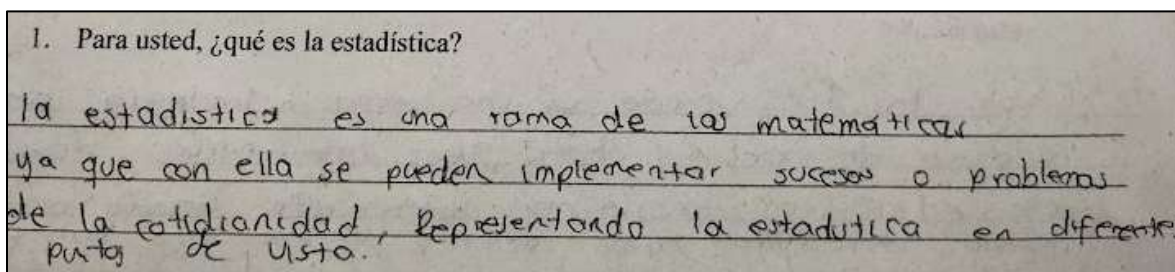 1. Para usted, ¿qué es la estadística?
la estadistica es una rama de las matematicas
ya que con ella se pueden implementar sucesos o problemas
de la cotidianidad, Representando la estadistica en diferente
puntos de vista.